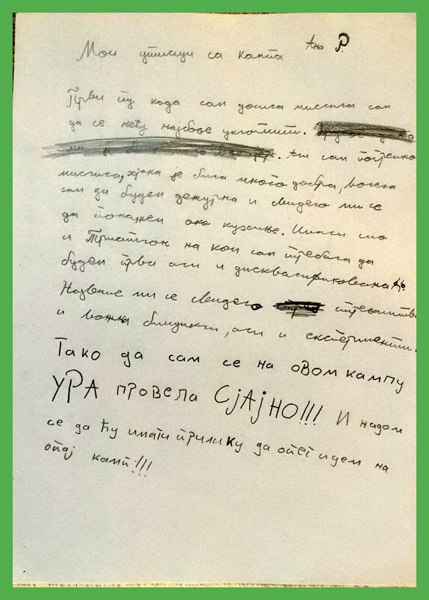 Моји утисци са кампа Ана Р.
Први пут када сам дошла мислила сам
да се нећу најбоље уклопити.
Али сам погрешно
мислила, храна је била много добра, волела
сам да будем дежурна и свидело ми се
да помажем око кухиње. Имали смо
и на ком сам требала да
будем прва али и дисквалификована
Највише ми се свидело стреличарство
и и експерименти.
Тако да сам се на овом кампу
УРА провела СЈАЈНО!!! И надам
се да ћу имати прилику да опет идем на
овај камп!!!